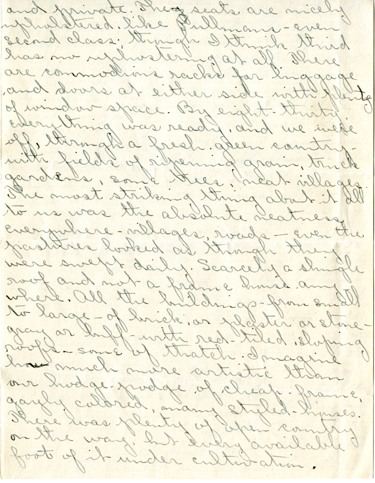 and private. The seats are nicely
upholstered like Pullmans - even
second class; though I think third
has no upholstering at all. There
are commodious racks for luggage
and doors at either side with plenty
of window space. By eight-thirty
everything was ready and we were
off, through a fresh green country
with fields of ripening grain, truck
gardens, some trees, neat villages.
The most striking thing about it all
to us was the absolute neatness
everywhere - villages, roads - even the
pastures looked as though they
were swept daily. Scarcely a shingle
roof and not a frame house any
where. All the buildings - from small
to large - of brick, or plaster or stone -
gray or buff - with red-tiled, sloping
roofs - some of thatch. Imagine
how much more artistic than
our hodge-podge of cheap frame,
gayly colored, many styled houses.
There was plenty of open country
on the way but every available
foot of it under cultivation.